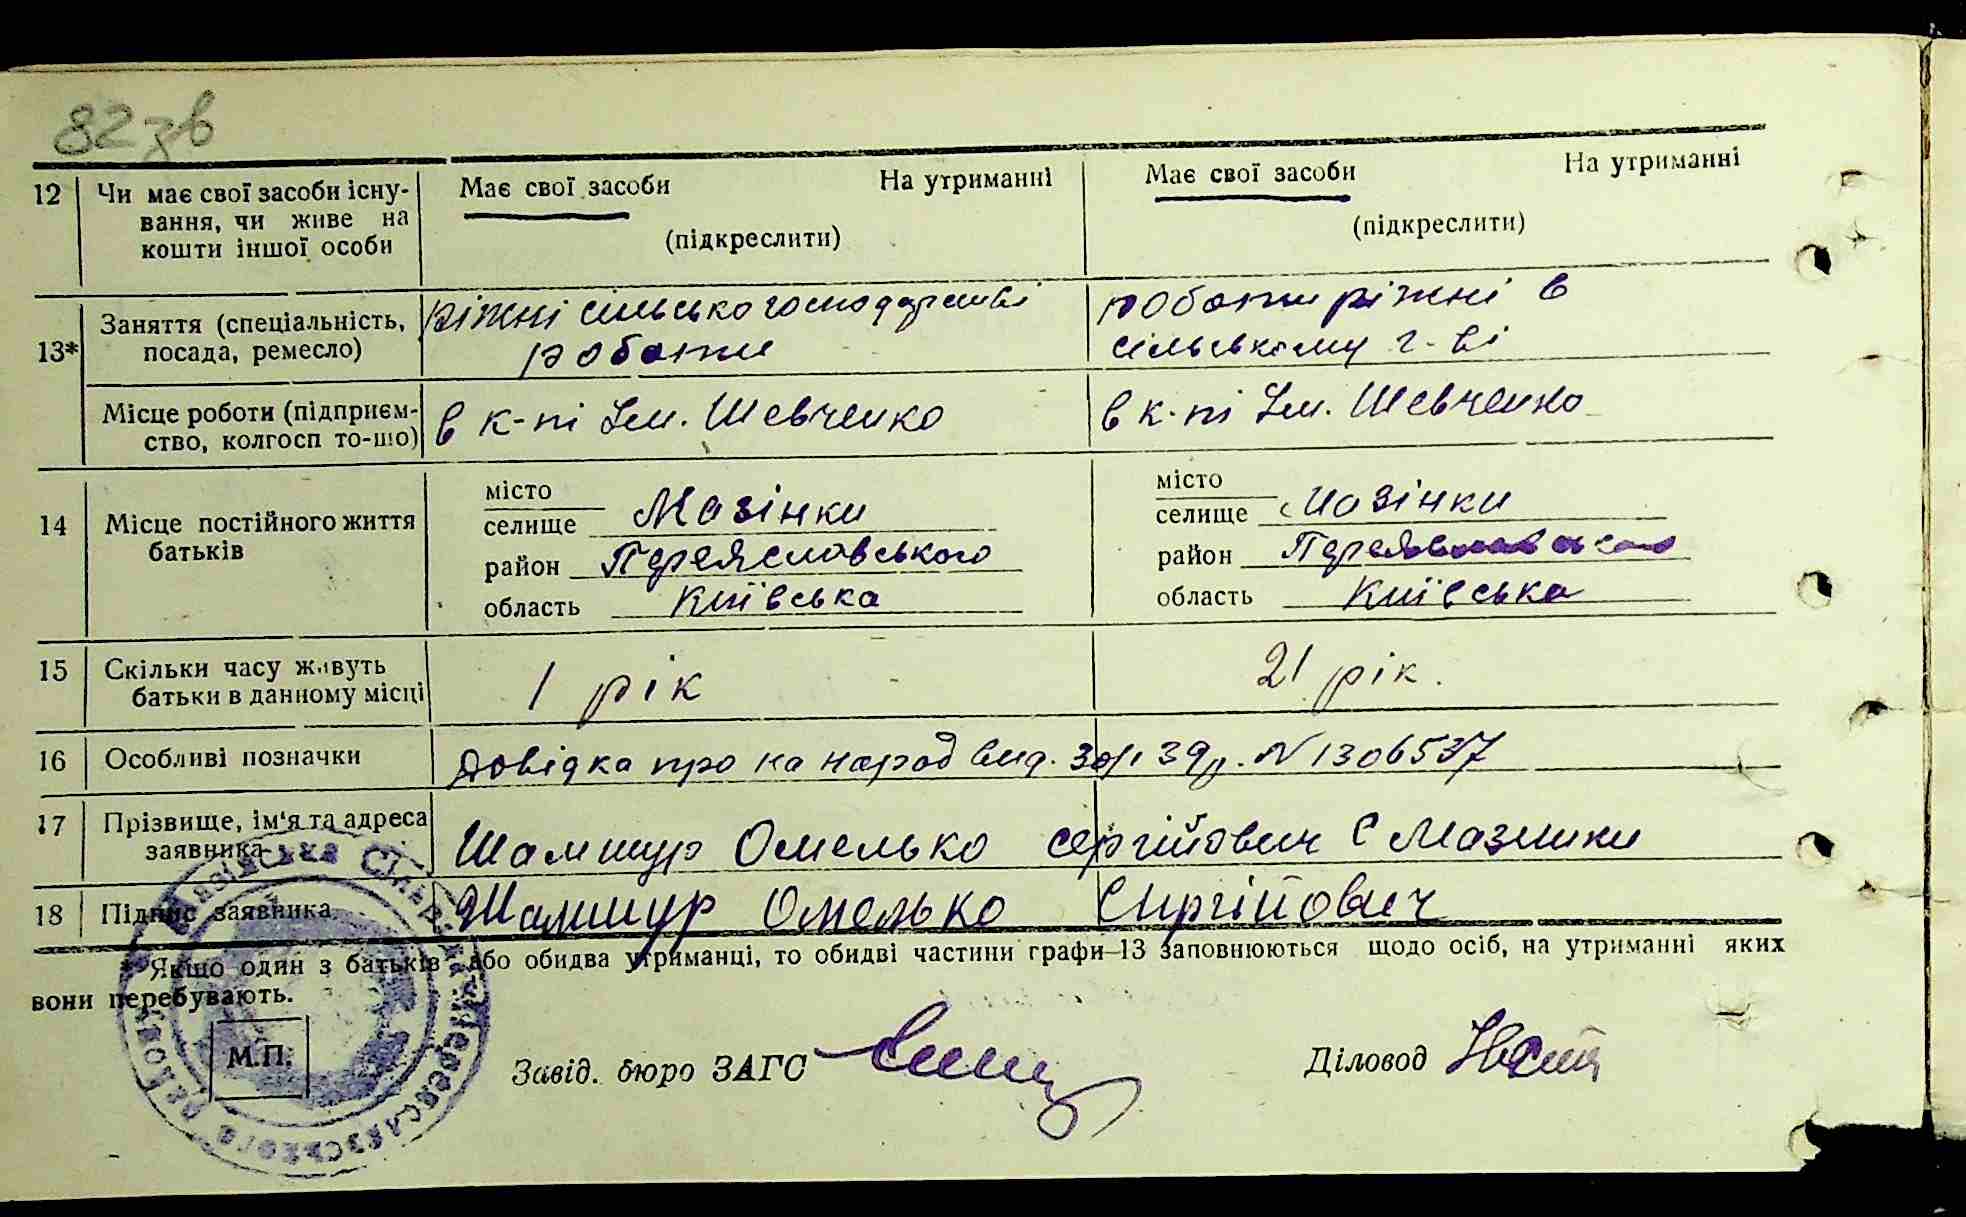 82 зв
12 Чи має свої засоби існу- Має свої засоби На утриманні Має свої засоби На утриманні
вання, чи живе на
кошти іншої особи (підкреслити) (підкреслити)
13* Заняття (спеціальність, ріжні сільськогосподарські роботи ріжні в
посада, ремесло) роботи сільському г-ві
Місце роботи (підприєм- в к-пі Ім. Шевченко в к-пі Ім. Шевченко
ство, колгосп то-що)
14 Місце постійного життя
батьків
місто місто
селище Мазінки селище Мазінки
район Переяславського район
область Київська область Київська
15 Скільки часу живуть 1 рік 21 рік.
батьки в данному місці
16 Особливі позначки Довідка про на народ вид. 39р. N 1306537
17 Прізвище, ім'я та адреса
заявника Шамшур Омелько сергійович С Мазинки
18 Підпис заявника Шамшур Омелько Сиргійович
* Якщо один з батьків або обидва утриманці, то обидві частини графи 13 заповнюються щодо осіб, на утриманні яких
вони перебувають.
М.П.
Завід. бюро ЗАГС Діловод